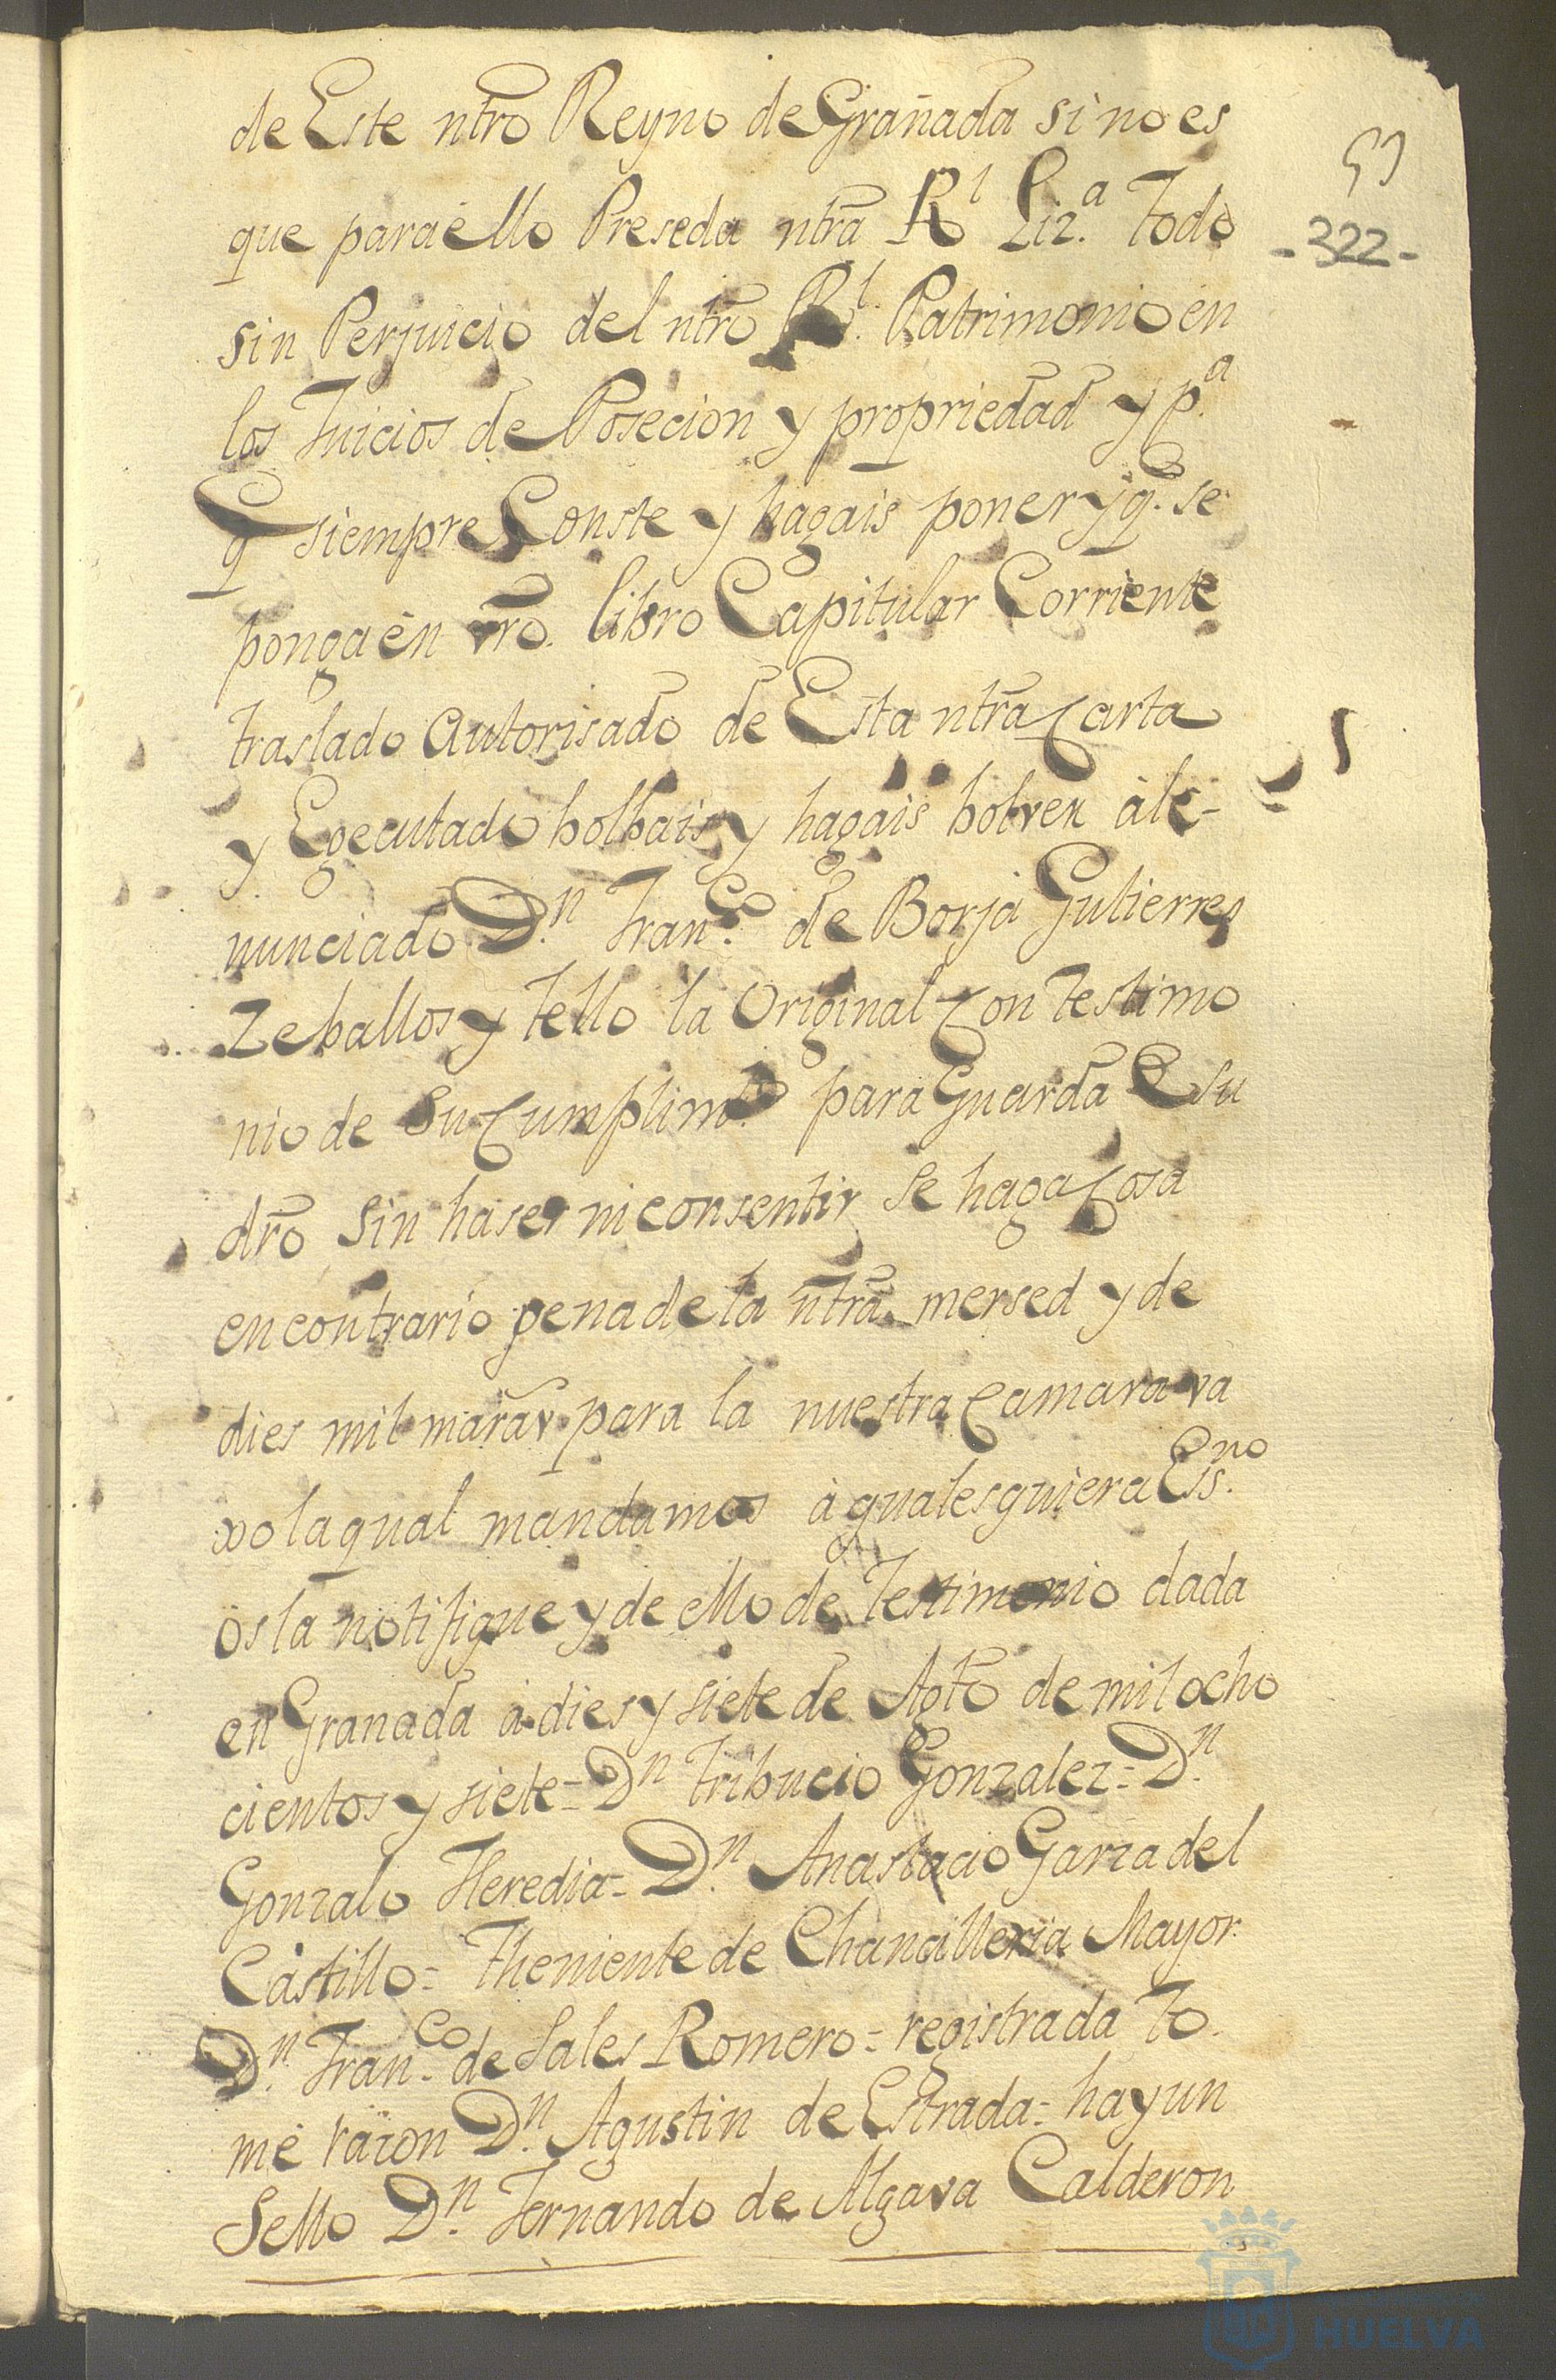 de Este ntrõ Reyno de Granada si no es
que para ello Preseda ntrã Rl Liz.a todo
sin Perjuicio del ntrõ Rl. Patrimonio en
los Juicios de Posecion y propriedad y p.a
q siempre Conste y hagais poner y q. se
ponga en vrõ. libro Capitular Corriente
traslado autorisado de Esta ntra Carta
y Egecutado bolbais y hagais bolver ál e-
nunciado D.n Fran.co de Borja Gutierres
Zeballos y tello la Original Con testimo
nio de Su Cumplim.to para Guarda E su
drõ Sin haser ni consentir Se haga Cosa
en contrario pena de la ntrã mersed y de
dies mil marav. para la nuestra Camara va
xo la qual mandamos á qualesquiera Ess.no
os la notifique y de ello de testimonio dada
en Granada á dies y siete de Agtõ de mil ocho
cientos y siete = Dn tribucio Gonzalez = D.n
Gonzalo Heredia = D.n Anastacio Garza del
Castillo = Theniente de Chancilleria Mayor.
D.n Fran.co de Sales Romero = registrada to.
me razon D.n Agustin de Estrada = hay un
Sello D.n Fernando de Algava Calderon
- 322 -
HUELVA